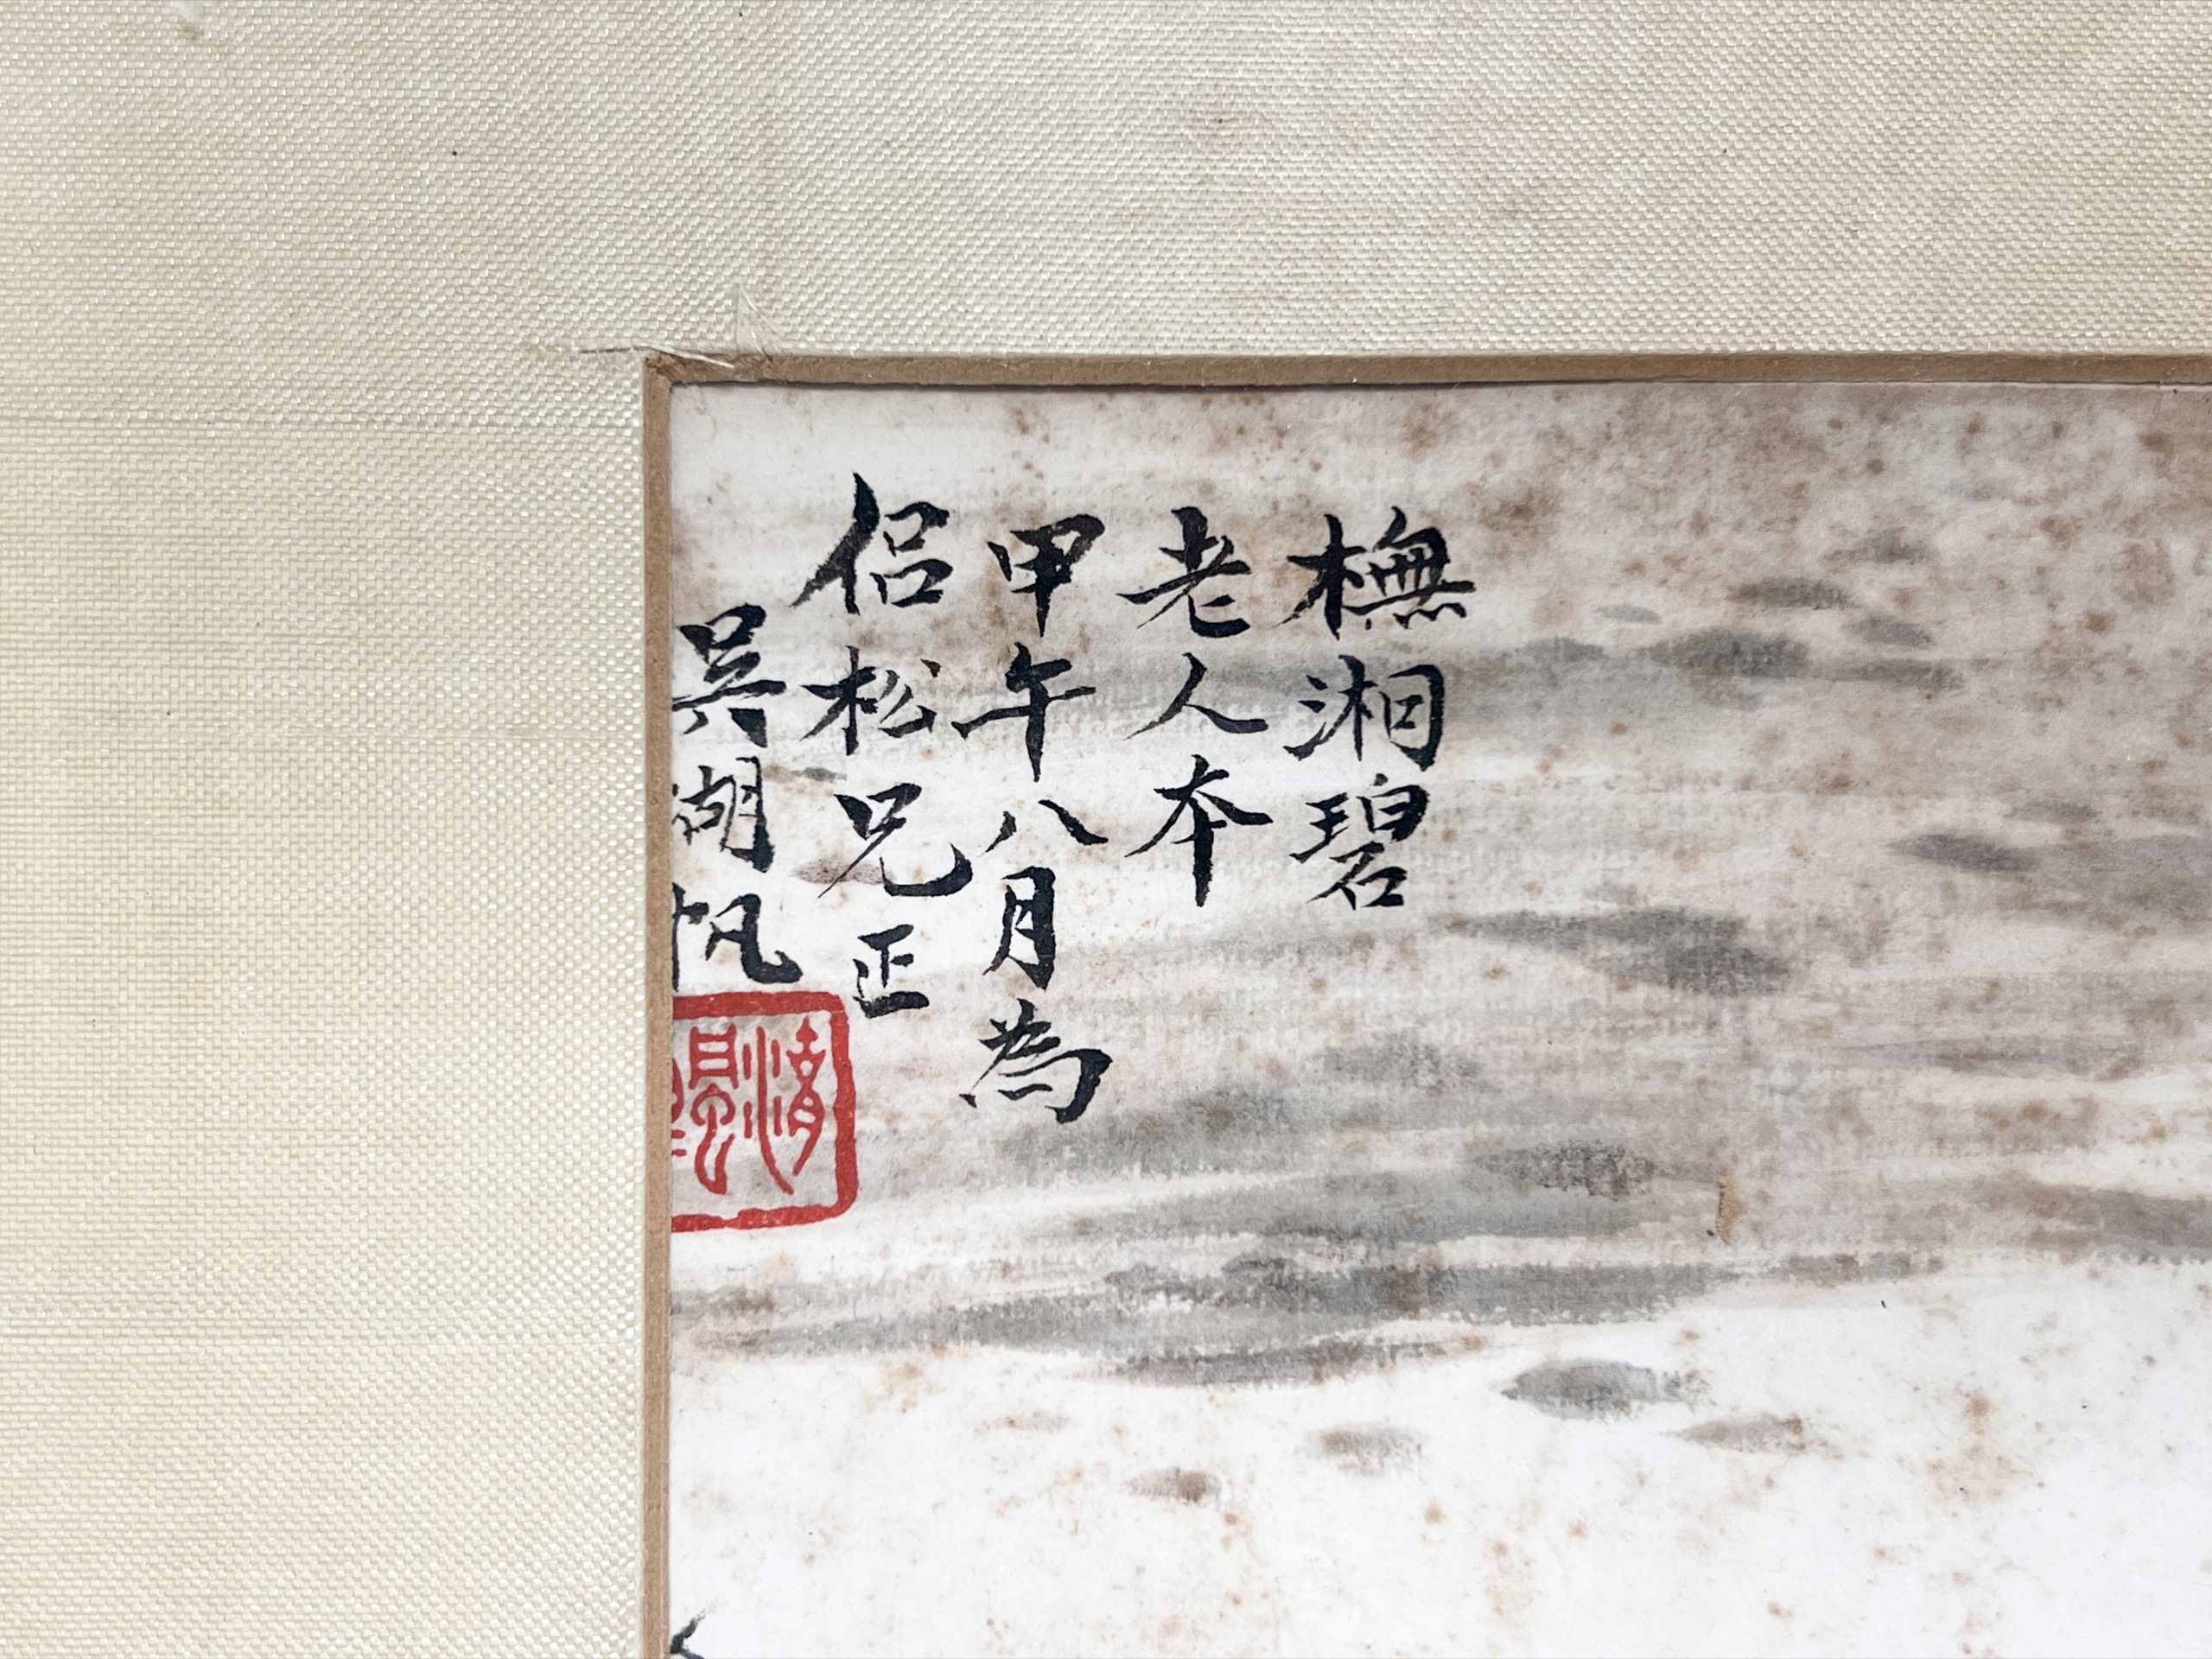 橅湘碧
老人本
甲午八月為
侣松兄正
吳湖帆